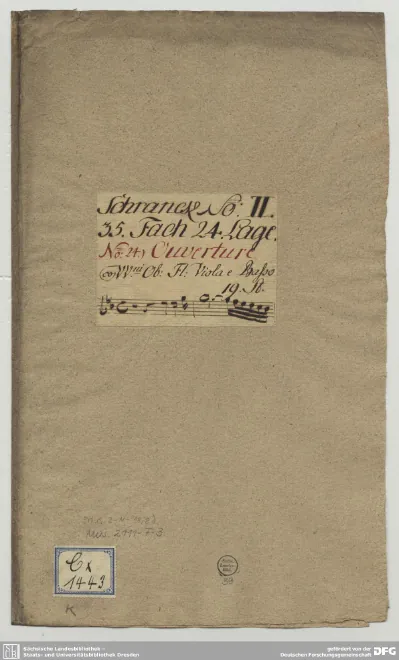 Schranck No: II.
35. Fach 24. Lage.
No: 24) Ouverture
co VVni Ob: Fl: Viola e Basso
19. St.
Cx
1443
K
Sächsische Landesbibliothek –
Staats- und Universitätsbibliothek Dresden
gefördert von der
Deutschen Forschungsgemeinschaft
DFG